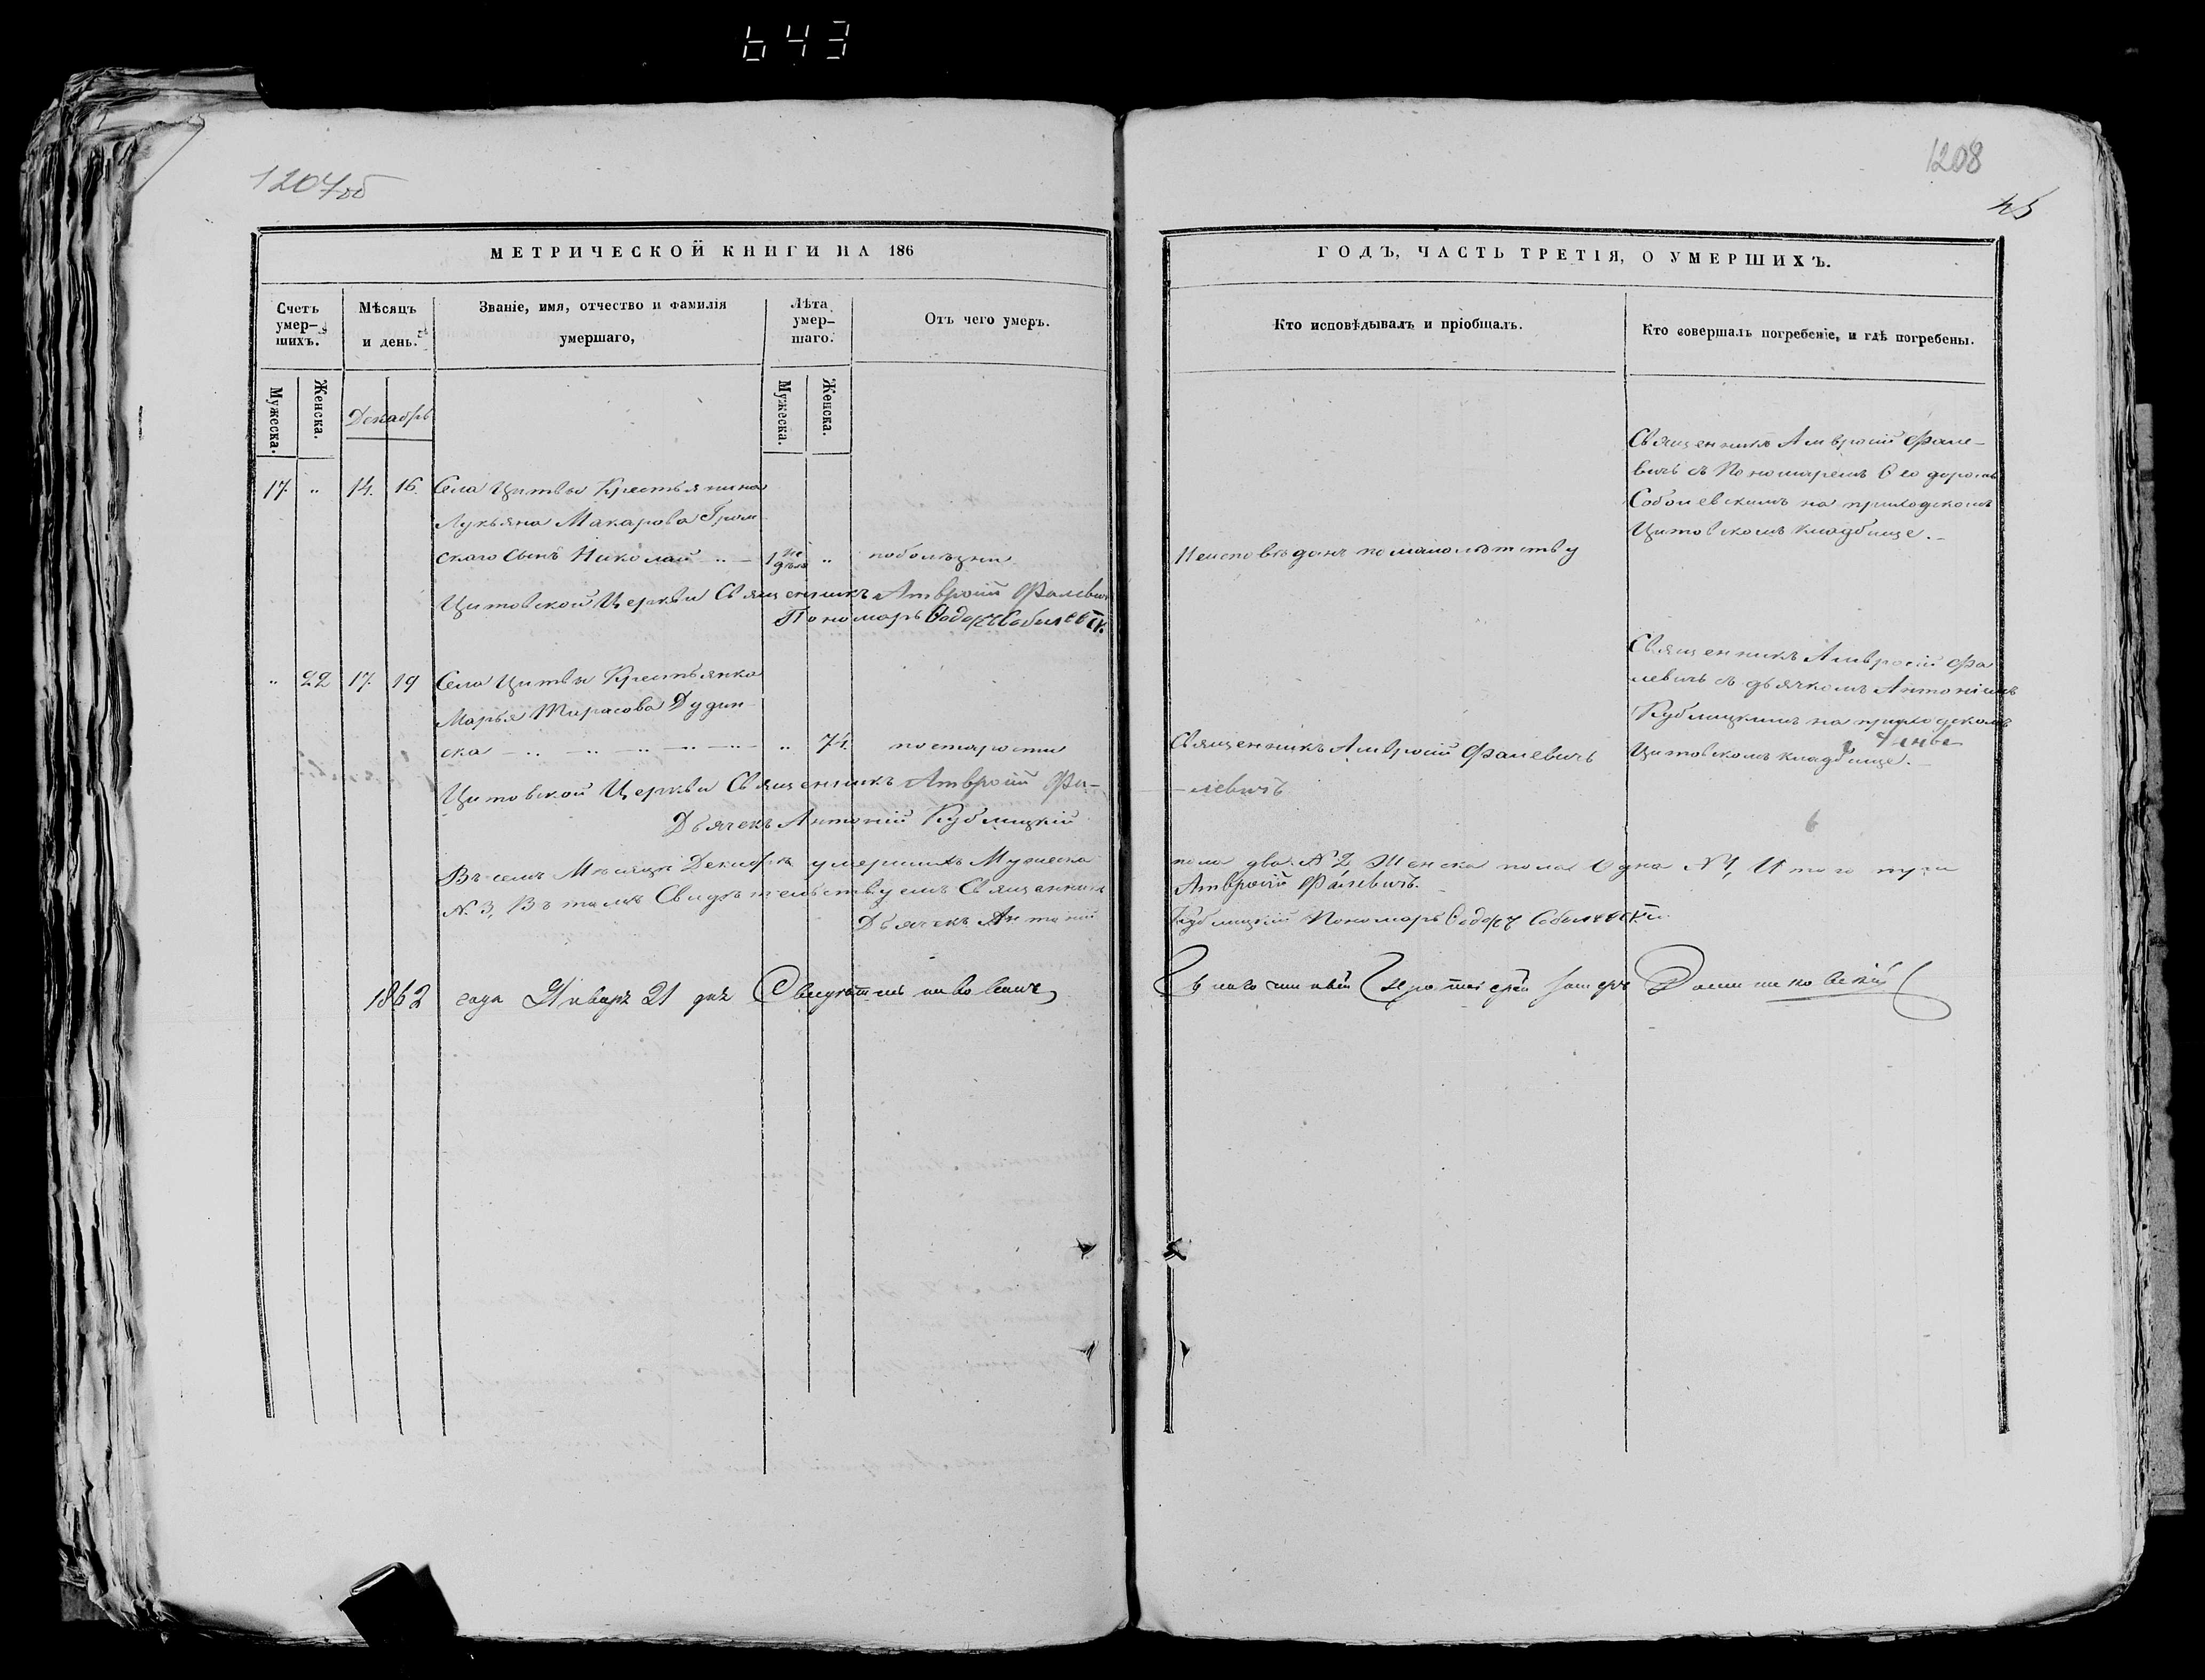 643
1207об
1208
45
МЕТРИЧЕСКОЙ КНИГИ НА 186
ГОДЪ, ЧАСТЬ ТРЕТІЯ, О УМЕРШИХЪ.
Счетъ умер-шихъ.
Мѣсяцъ и день.
Званіе, имя, отчество и фамилія умершаго,
Лѣта умер-шаго.
Отъ чего умеръ.
Кто исповѣдывалъ и пріобщалъ.
Кто совершалъ погребеніе, и гдѣ погребены.
Мужеска.
Женска.
Декабрь
Мужеска.
Женска.
17. " 14. 16. Села Цитвы Крестьянина
Лукьяна Макарова
скаго сынъ Николай 1 недѣля " поболѣзни
Неисповѣданъ помалолѣтству
Священникъ Амвросій Фале-
вичь съ Пономаремъ Ѳеодоромъ
Соболевскимъ на приходскомъ
Цитовскомъ кладбище.
Цитовской Церкви Священникъ Амвросій Фалевичъ
Пономарь Ѳеодоръ Соболевск.
" 22 17. 19 Села Цитвы Крестьянка
Марья Тарасова Дудин
ска " 74. постарости
Священникъ Амвросій Фалевичь
Священникъ Амвросій Фа
левичь съ дьячкомъ Антоніемъ
Кублицкимъ на приходскомъ
Цитовскомъ кладбище.
Цитовской Церкви Священникъ Амвросій Фа-
-левичъ
Дьячекъ Антоній Кублицкій
6
Въ семъ Мѣсяцѣ Декабрѣ умершихъ Мужеска
пола два №2, Женска пола Одна №1, Итого три
№ 3, Въ томъ Свидѣтельствуемъ Священникъ
Амвросій Фалевичъ.
Дьячекъ Антоній
Кублицкій Пономарь Ѳеодоръ Соболевскій
1862 года Января 21 дня Свидѣтельствовалъ
Благочинный Протоіерей